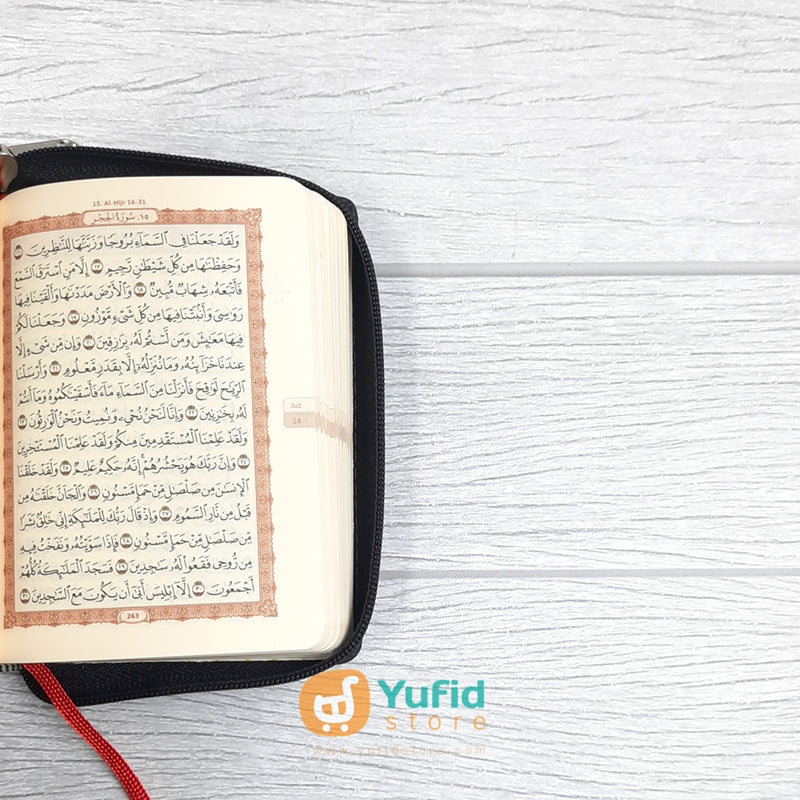 15. Al-Hijr 16-31
١٥. سُورَةُ الْحِجْرِ
وَلَقَدْ جَعَلْنَا فِي السَّمَاءِ بُرُوجًا وَزَيَّنَّاهَا لِلنَّاظِرِينَ ١٦
وَحَفِظْنَاهَا مِن كُلِّ شَيْطَانٍ رَّجِيمٍ ١٧ إِلَّا مَنِ اسْتَرَقَ السَّمْعَ
فَأَتْبَعَهُ شِهَابٌ مُّبِينٌ ١٨ وَالْأَرْضَ مَدَدْنَاهَا وَأَلْقَيْنَا فِيهَا
رَوَاسِيَ وَأَنبَتْنَا فِيهَا مِن كُلِّ شَيْءٍ مَّوْزُونٍ ١٩ وَجَعَلْنَا لَكُمْ
فِيهَا مَعَايِشَ وَمَن لَّسْتُمْ لَهُ بِرَازِقِينَ ٢٠ وَإِن مِّن شَيْءٍ إِلَّا
عِندَنَا خَزَائِنُهُ وَمَا نُنَزِّلُهُ إِلَّا بِقَدَرٍ مَّعْلُومٍ ٢١ وَأَرْسَلْنَا
الرِّيَاحَ لَوَاقِحَ فَأَنزَلْنَا مِنَ السَّمَاءِ مَاءً فَأَسْقَيْنَاكُمُوهُ وَمَا أَنتُمْ
لَهُ بِخَازِنِينَ ٢٢ وَإِنَّا لَنَحْنُ نُحْيِي وَنُمِيتُ وَنَحْنُ الْوَارِثُونَ ٢٣
وَلَقَدْ عَلِمْنَا الْمُسْتَقْدِمِينَ مِنكُمْ وَلَقَدْ عَلِمْنَا الْمُسْتَأْخِرِينَ
٢٤ وَإِنَّ رَبَّكَ هُوَ يَحْشُرُهُمْ إِنَّهُ حَكِيمٌ عَلِيمٌ ٢٥ وَلَقَدْ خَلَقْنَا
الْإِنسَانَ مِن صَلْصَالٍ مِّنْ حَمَإٍ مَّسْنُونٍ ٢٦ وَالْجَانَّ خَلَقْنَاهُ مِن
قَبْلُ مِن نَّارِ السَّمُومِ ٢٧ وَإِذْ قَالَ رَبُّكَ لِلْمَلَائِكَةِ إِنِّي خَالِقٌ بَشَرًا
مِّن صَلْصَالٍ مِّنْ حَمَإٍ مَّسْنُونٍ ٢٨ فَإِذَا سَوَّيْتُهُ وَنَفَخْتُ فِيهِ
مِن رُّوحِي فَقَعُوا لَهُ سَاجِدِينَ ٢٩ فَسَجَدَ الْمَلَائِكَةُ كُلُّهُمْ
أَجْمَعُونَ ٣٠ إِلَّا إِبْلِيسَ أَبَىٰ أَن يَكُونَ مَعَ السَّاجِدِينَ ٣١
263
Juz
14
Yufid
store
www.yufidstore.com